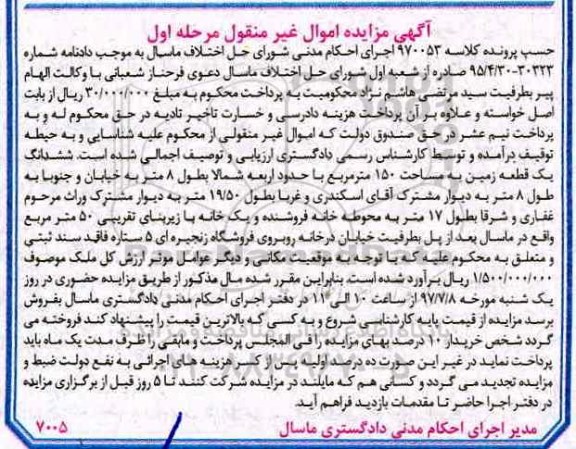 آگهی مزایده اموال غیر منقول مرحله اول
حسب پرونده کلاسه ۹۷۰۰۵۳ اجرای احکام مدنی شورای حل اختلاف ماسال به موجب دادنامه شماره
۹۵/۴/۳۰-۳۰۳۲۳ صادره از شعبه اول شورای حل اختلاف ماسال دعوی فرحناز شعبانی با وکالت الهام
پیر بطرفیت سید مرتضی هاشم نژاد محکومیت به پرداخت محکوم به مبلغ ۳۰/۰۰۰/۰۰۰ ریال از بابت
اصل خواسته و علاوه بر آن پرداخت هزینه دادرسی و خسارت تاخیر تادیه در حق محکوم له و به
پرداخت نیم عشر در حق صندوق دولت که اموال غیر منقولی از محکوم علیه شناسایی و به حیطه
توقیف درآمده و توسط کارشناس رسمی دادگستری ارزیابی و توصیف اجمالی شده است. ششدانگ
یک قطعه زمین به مساحت ۱۵۰ مترمربع با حدود اربعه شمالا بطول ۸ متر به خیابان و جنوبا به
طول ۸ متر به دیوار مشترک آقای اسکندری و غربا بطول ۱۹/۵۰ متر به دیوار مشترک وراث مرحوم
غفاری و شرقا بطول ۱۷ متر به محوطه خانه فروشنده و یک خانه با زیربنای تقریبی ۵۰ متر مربع
واقع در ماسال بعد از پل بطرفیت خیابان درخانه روبروی فروشگاه زنجیره ای ۵ ستاره فاقد سند ثبتی
و متعلق به محکوم علیه که با توجه به موقعیت مکانی و دیگر عوامل موثر ارزش کل ملک موصوف
۱/۵۰۰/۰۰۰/۰۰۰ ریال برآورد شده است. بنابراین مقرر شده مال مذکور از طریق مزایده حضوری در روز
یک شنبه مورخه ۹۷/۷/۸ از ساعت ۱۰ الی ۱۱ در دفتر اجرای احکام مدنی دادگستری ماسال بفروش
برسد مزایده از قیمت پایه کارشناسی شروع و به کسی که بالاترین قیمت را پیشنهاد کند فروخته می
گردد شخص خریدار ۱۰ درصد بهای مزایده را فی المجلس پرداخت و مابقی را ظرف مدت یک ماه باید
پرداخت نماید در غیر این صورت ده درصد اولیه پس از کسر هزینه های اجرائی به نفع دولت ضبط و
مزایده تجدید می گردد و کسانی هم که مایلند در مزایده شرکت کنند تا ۵ روز قبل از برگزاری مزایده
در دفتر اجرا حاضر تا مقدمات بازدید فراهم آید.
مدیر اجرای احکام مدنی دادگستری ماسال
۷۰۰۵